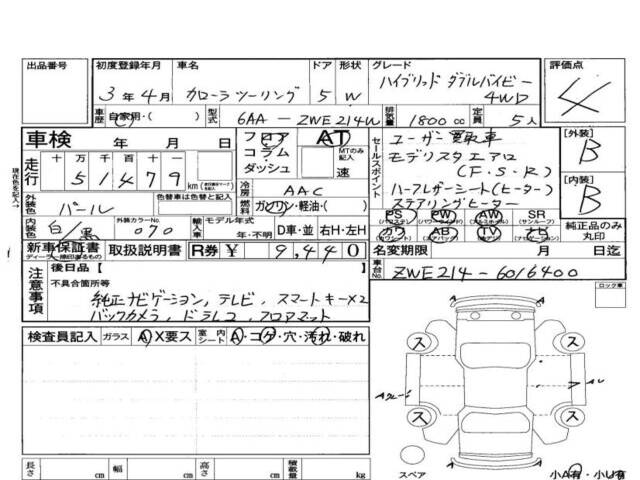 出品番号 初度登録年月 車名 ドア 形状 グレード 評価点
3年4月 カローラツーリング 5 W ハイブリッド ダブルバイビー 4WD 4
車歴 自家用・( ) 型式 6AA-ZWE214W 排気量 1800cc 定員 5人
車検 年 月 日 フロア コラム・ダッシュ AT MTのみ記入 速
セールスポイント ユーザー買取車
モデリスタエアロ
(F.S.R)
ハーフレザーシート(ヒーター)
ステアリングヒーター
[外装] B
[内装] B
走行 十 万 千 百 十 一
51479 km
冷房 AAC
燃料 ガソリン・軽油・( )
外装色 パール 色替車は色替と記入
内装色 白/黒 外装カラーNo. 070 輸入車 モデル年式 年・不明 D車・並 右H・左H
PS PW AW SR (サンルーフ)
カワ AB TV ナビ
純正品のみ丸印
新車保証書 取扱説明書 R券 ¥ 9,440
名変期限 月 日迄
車台No. ZWE214-6016400
現在色を記入→
注意事項 後日品( )
不具合箇所等
純正ナビゲーション,テレビ,スマートキー×2
バックカメラ,ドラレコ,フロアマット
ロック車
検査員記入 ガラス A X要ス 室内シート A・コゲ・穴・汚れ・破れ
ス ス
ス ス
スペア 小A有・小U有
長さ cm 幅 cm 高さ cm 積載量 kg